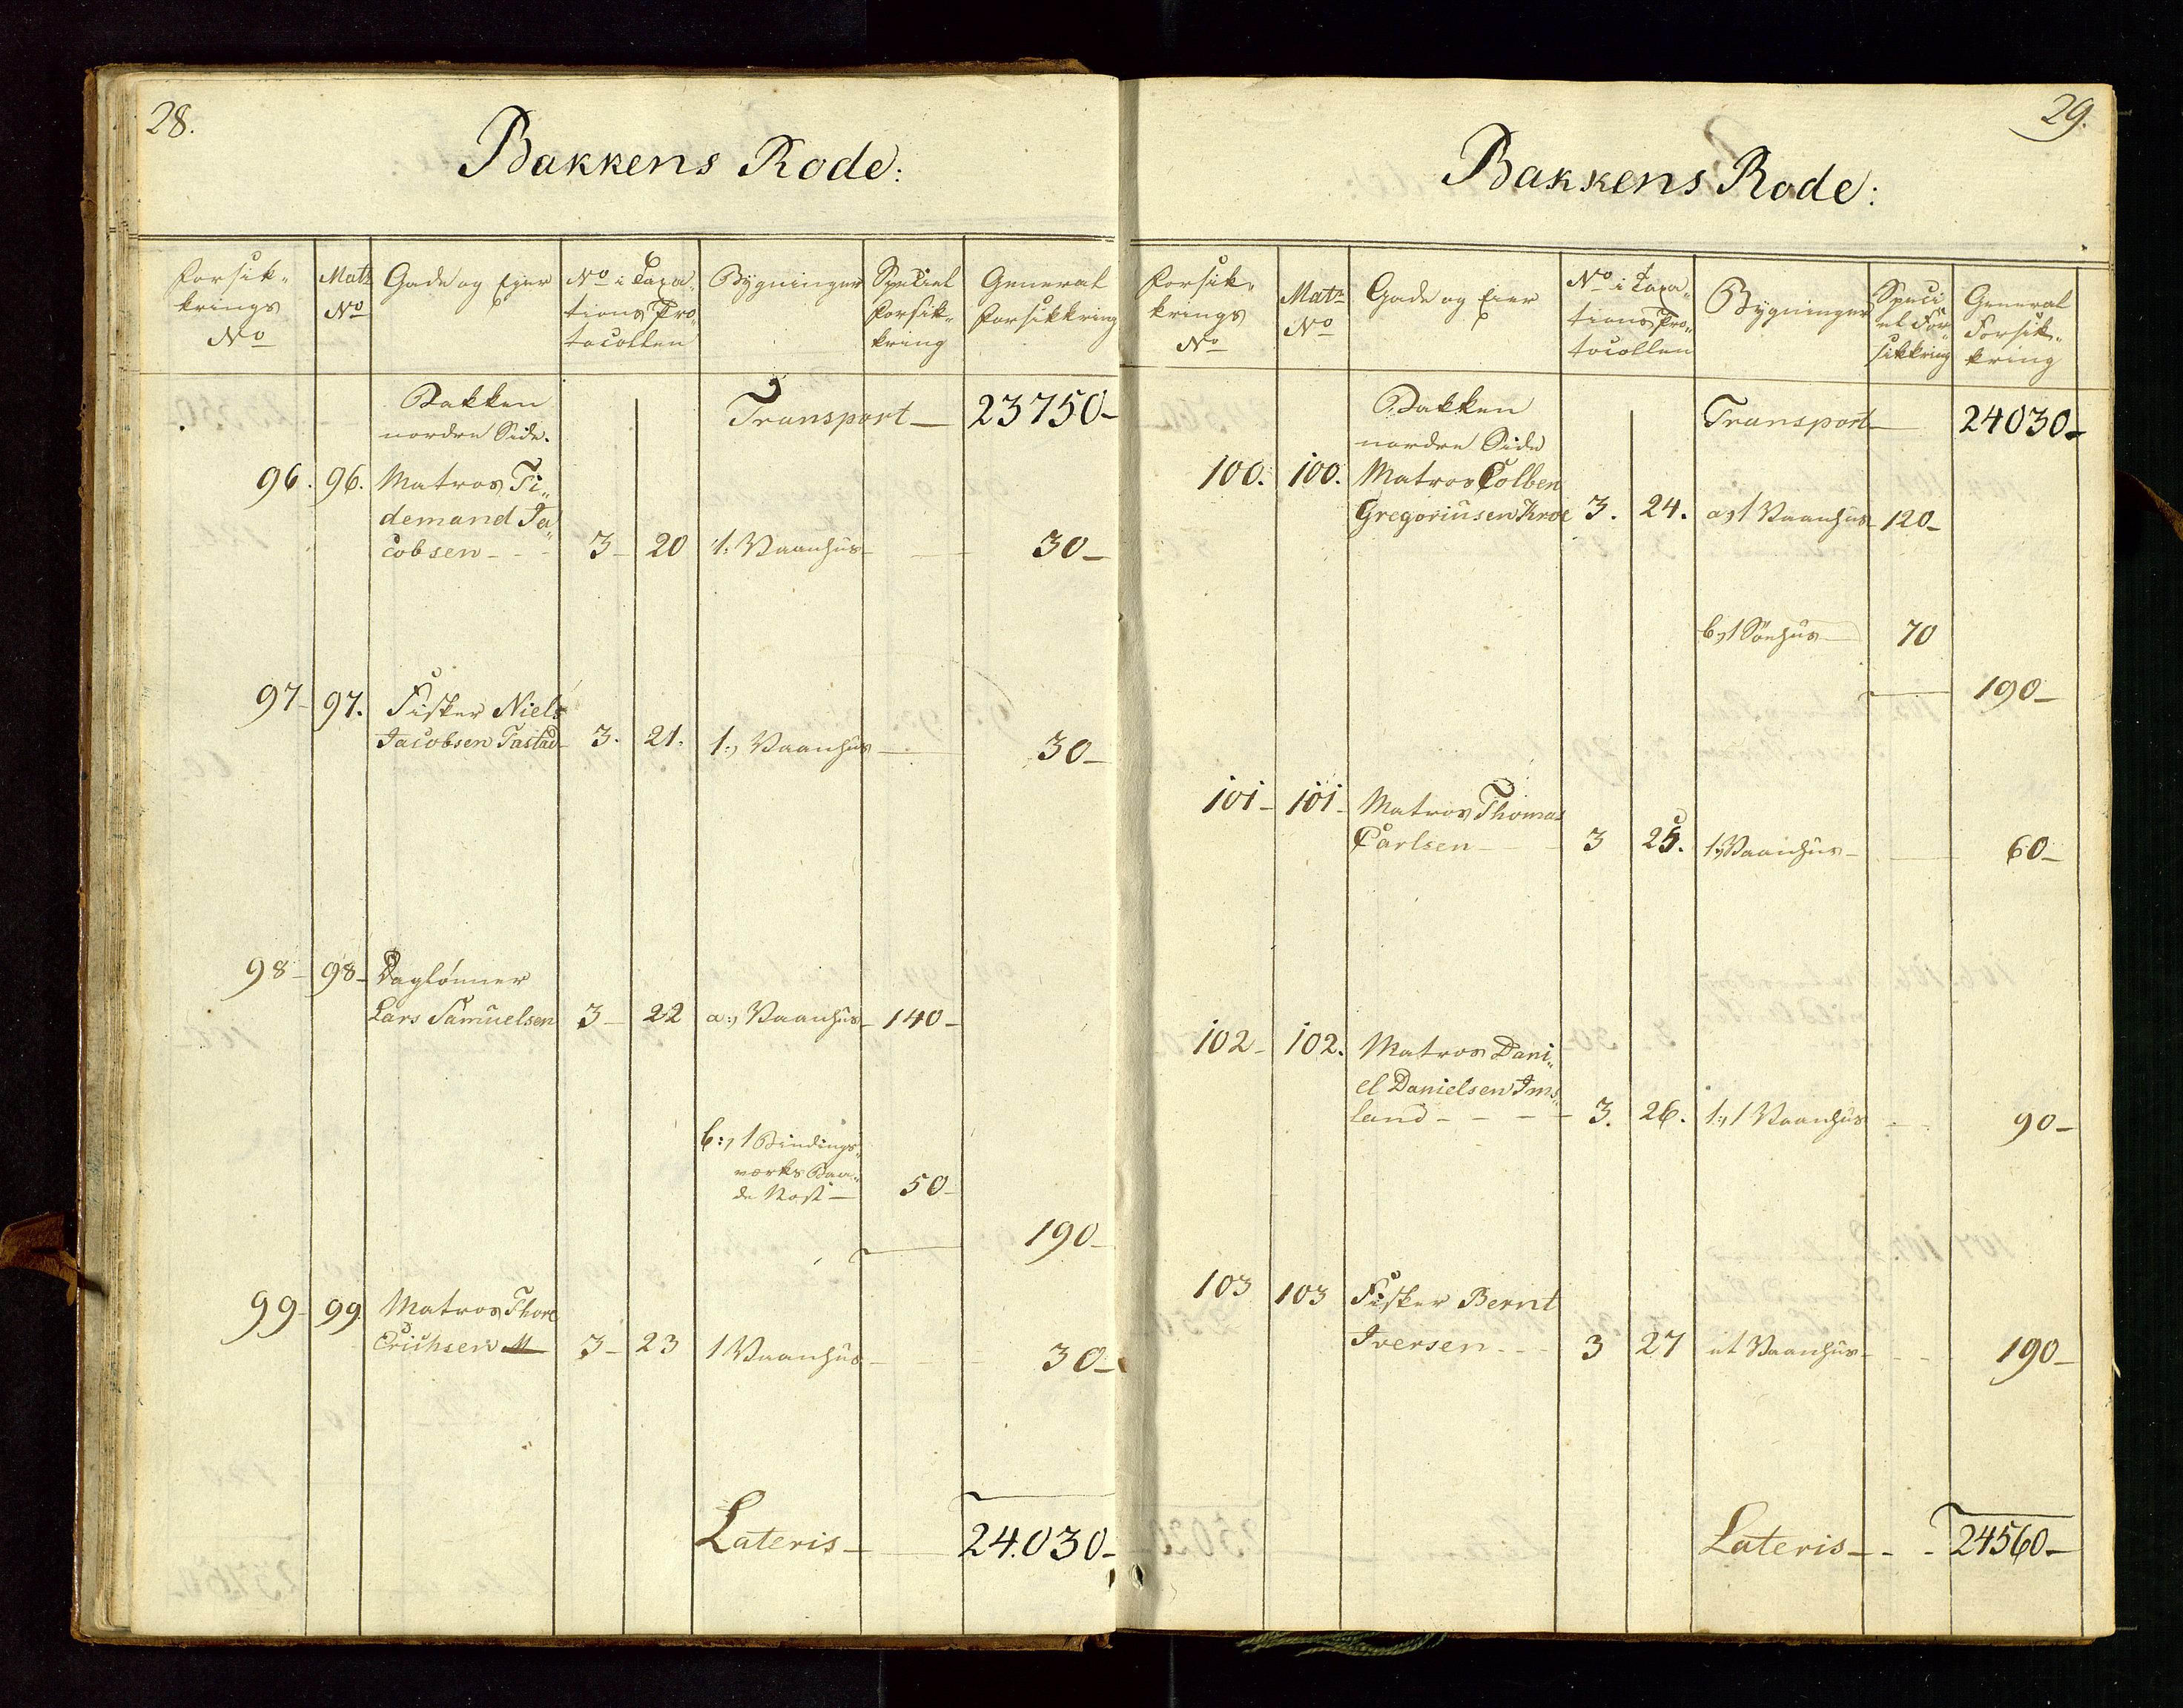 28.
Bakkens Rode:
Forsik-
krings
No
Matr
No
Gade og Ejer
No i Taxa-
tions Pro-
tocollen
Bygninger
Speciel
Forsik-
kring
General
Forsikkring
Bakken
nordre Side.
Transport — 23750 —
96. 96. Matros Ti-
demand Ja-
cobsen - - 3 — 20 1: Vaanhus — 30 —
97 — 97. Fisker Niels
Jacobsen Tastad 3. 21. 1., Vaanhus — 30 —
98 — 98 — Daglönner
Lars Samuelsen 3 — 22 a., Vaanhus — 140 —
b:, 1 Bindings-
værks Baa-
de Nøst — 50 —
190 —
99 — 99. Matros Thore
Erichsen 3 — 23 1 Vaanhus — 30 —
Lateris — 24.030 —
29.
Bakkens Rode:
Forsik-
krings
No
Matr
No
Gade og Eier
No i Taxa-
tions Pro-
tocollen
Bygninger
Speci
el For-
sikkring
General
Forsik-
kring
Bakken
nordre Side
Transport — 24030 —
100. 100. Matros Colben
Gregoriusen Kroe 3. 24. a, 1 Vaanhus 120 —
b, 1 Söehus — 70
190 —
101 — 101 — Matros Thomas
Carlsen — 3 25. 1, Vaanhus — 60 —
102 — 102. Matros Dani-
el Danielsen Ims-
land - - - 3. 26. 1., 1 Vaanhus 90 —
103 103 Fisker Bernt
Iversen - - 3 27 et Vaanhus — 190 —
Lateris — - - 24560 —